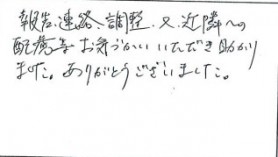 報告、連絡、調整、又、近隣への
配慮等お気づかいいただき助かり
ました。ありがとうございました。